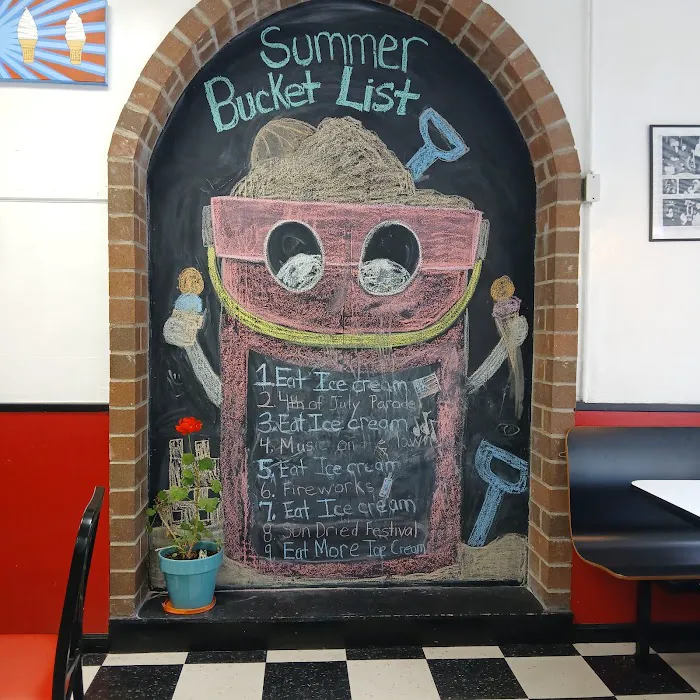 Summer
Bucket List
1. Eat Ice cream
2. 4th of July Parade
3. Eat Ice cream
4. Music on the lawn
5. Eat Ice cream
6. Fireworks
7. Eat Ice cream
8. Sun Dried Festival
9. Eat More Ice Cream